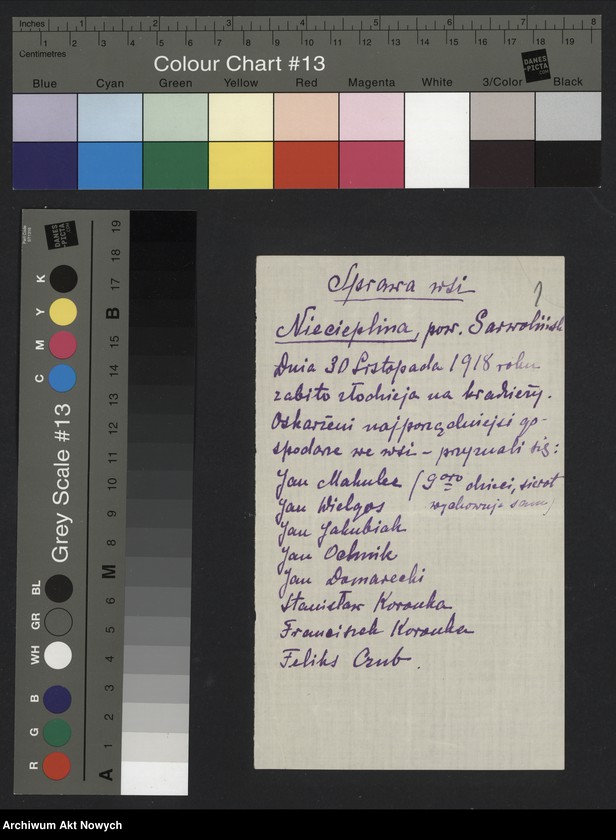 Inches 1 2 3 4 5 6 7 8
1 2 3 4 5 6 7 8 9 10 11 12 13 14 15 16 17 18 19
Centimetres
Colour Chart #13
DANES-PICTA.COM
Blue Cyan Green Yellow Red Magenta White 3/Color Black
DANES-PICTA.COM
Grey Scale #13
C M Y K
R G B WH GR BL
A 1 2 3 4 5 6 M 8 9 10 11 12 13 14 15 B 17 18 19
1
Sprawa wsi
Niecieplina, pow. Garwoliński
Dnia 30 Listopada 1918 roku
zabito złodzieja na kradzieży.
Oskarżeni najporządniejsi go-
spodarze we wsi – przyznali się:
Jan Makulec (9oro dzieci, sierot
wychowuje sam)
Jan Wielgos
Jan Jakubiak
Jan Ochnik
Jan Domarecki
Stanisław Koronka
Franciszek Koronka
Feliks Czub.
Archiwum Akt Nowych